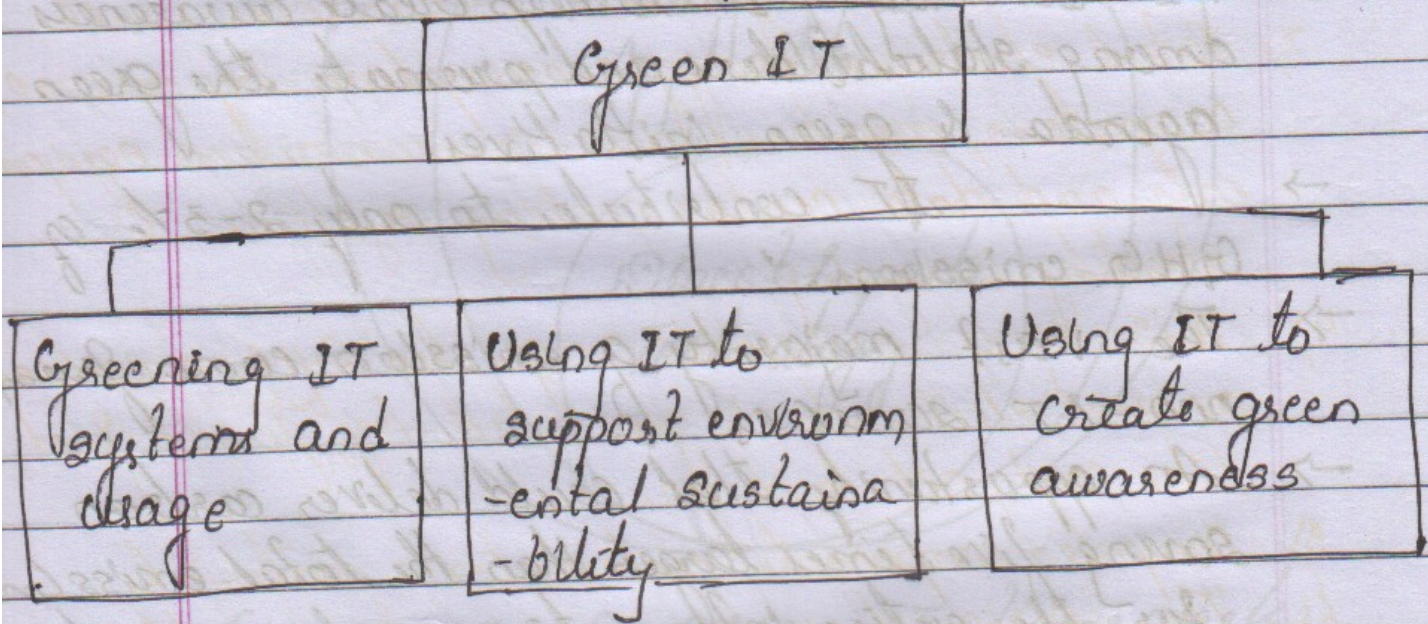 Green IT
Greening IT
systems and
usage
Using IT to
support environm
-ental sustaina
-bility
Using IT to
create green
awareness